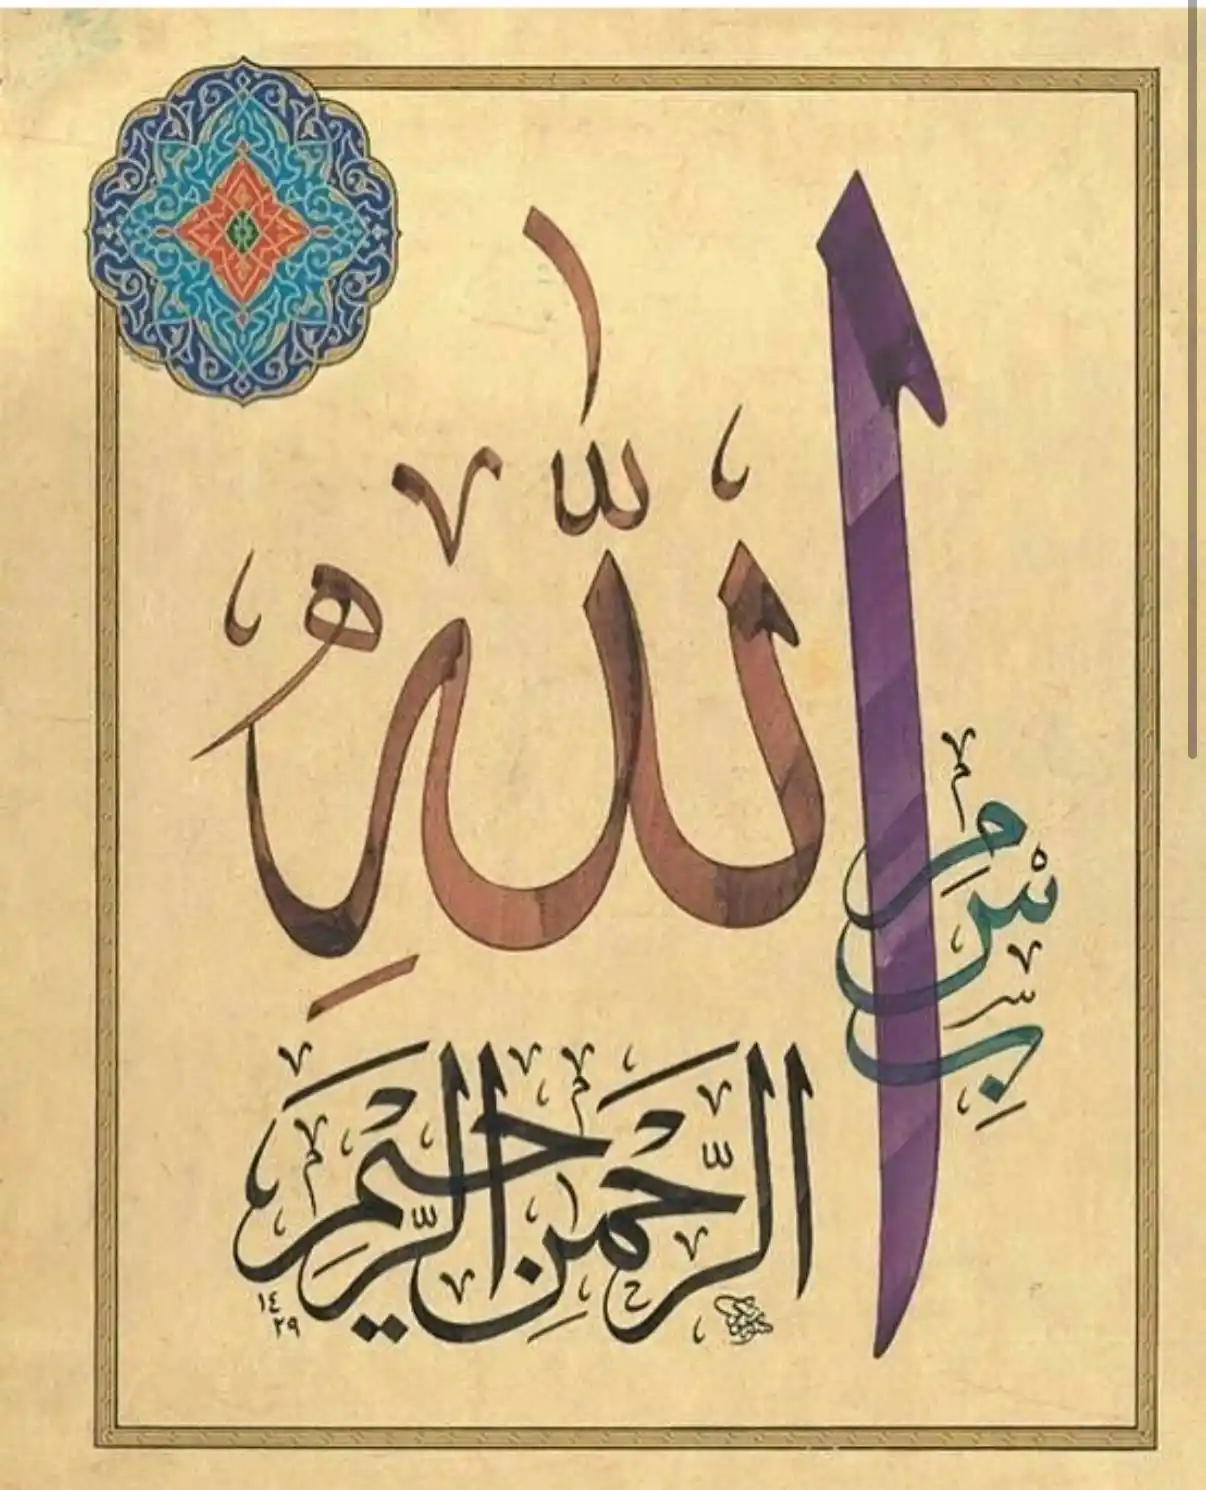 بِسْمِ
اللّٰهِ
الرَّحْمٰنِ الرَّحِيْمِ
١٤٢٩